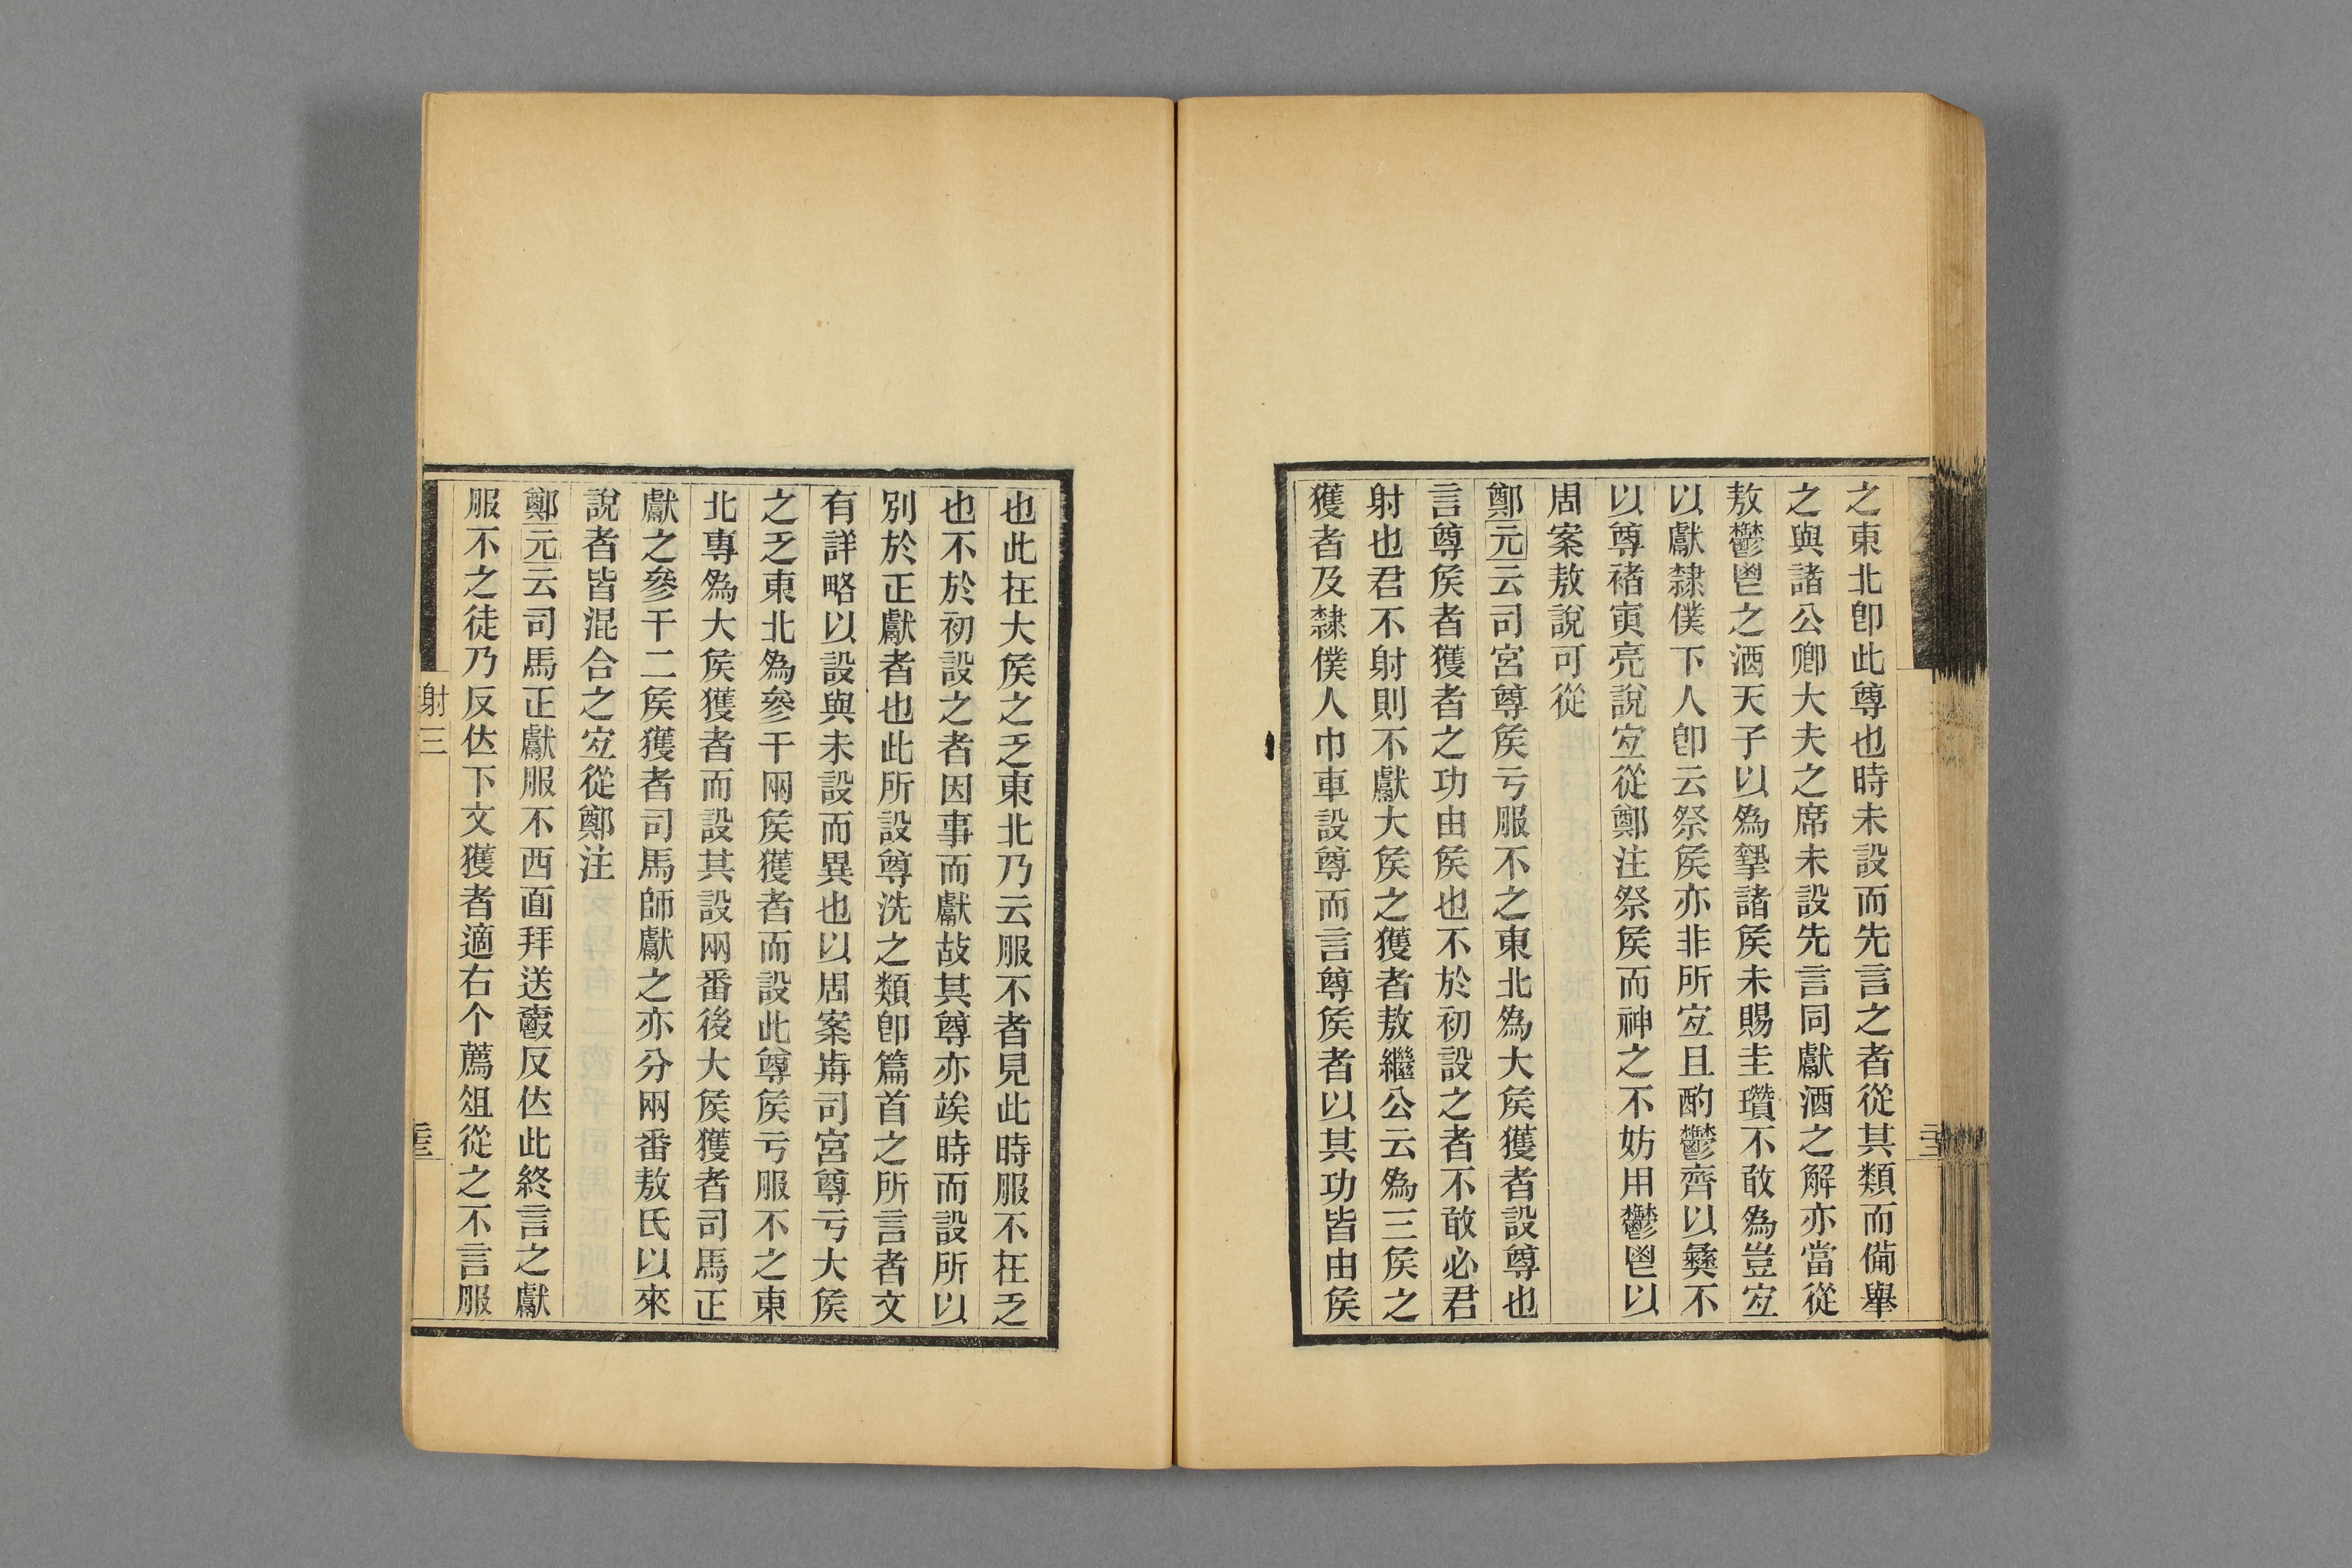 之東北卽此尊也時未設而先言之者從其類而備舉
之與諸公卿大夫之席未設先言同獻酒之解亦當從
敖鬱鬯之酒天子以為摯諸矦未賜圭瓚不敢為豈宐
以獻隸僕下人卽云祭矦亦非所宐且酌鬱齊以彝不
以尊褚寅亮說宐從鄭注祭矦而神之不妨用鬱鬯以
周案敖說可從
鄭元云司宮尊矦亏服不之東北為大矦獲者設尊也
言尊矦者獲者之功由矦也不於初設之者不敢必君
射也君不射則不獻大矦之獲者敖繼公云為三矦之
獲者及隸僕人巾車設尊而言尊矦者以其功皆由矦
也此在大矦之乏東北乃云服不者見此時服不在乏
也不於初設之者因事而獻故其尊亦竢時而設所以
別於正獻者也此所設尊洗之類卽篇首之所言者文
有詳略以設與未設而異也以周案歬司宮尊亏大矦
之乏東北為參干兩矦獲者而設此尊矦亏服不之東
北專為大矦獲者而設其設兩番後大矦獲者司馬正
獻之參干二矦獲者司馬師獻之亦分兩番敖氏以來
說者皆混合之宐從鄭注
鄭元云司馬正獻服不西面拜送爵反位此終言之獻
服不之徒乃反位下文獲者適右个薦俎從之不言服
射三